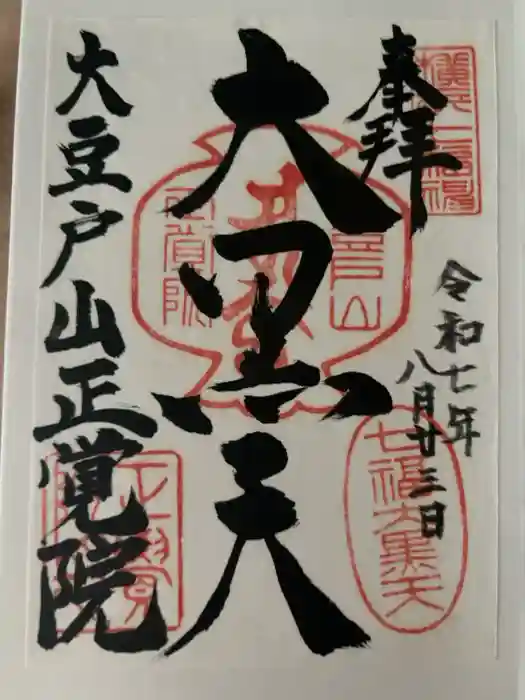 奉拝
令和七年
八月廿三日
七福大黒天
大黒天
正覚院
大豆戸山正覚院